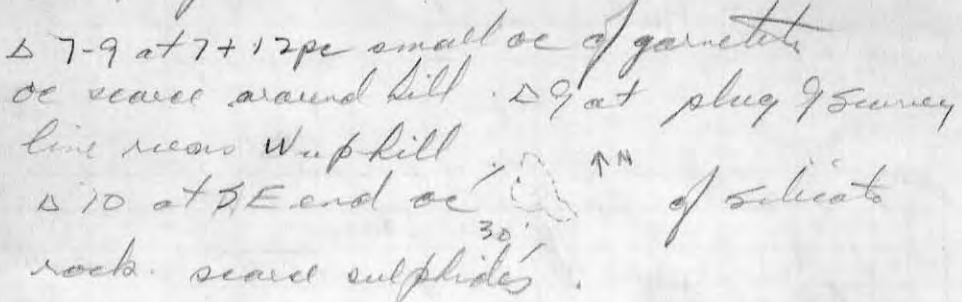 Δ 7-9 at 7+12pc small oc of garnetite
oc scarce around hill. Δ9 at plug 9 survey
line runs W uphill
Δ 10 at SE end oc ↑N of silicate
30'
rock. scarce sulphides.